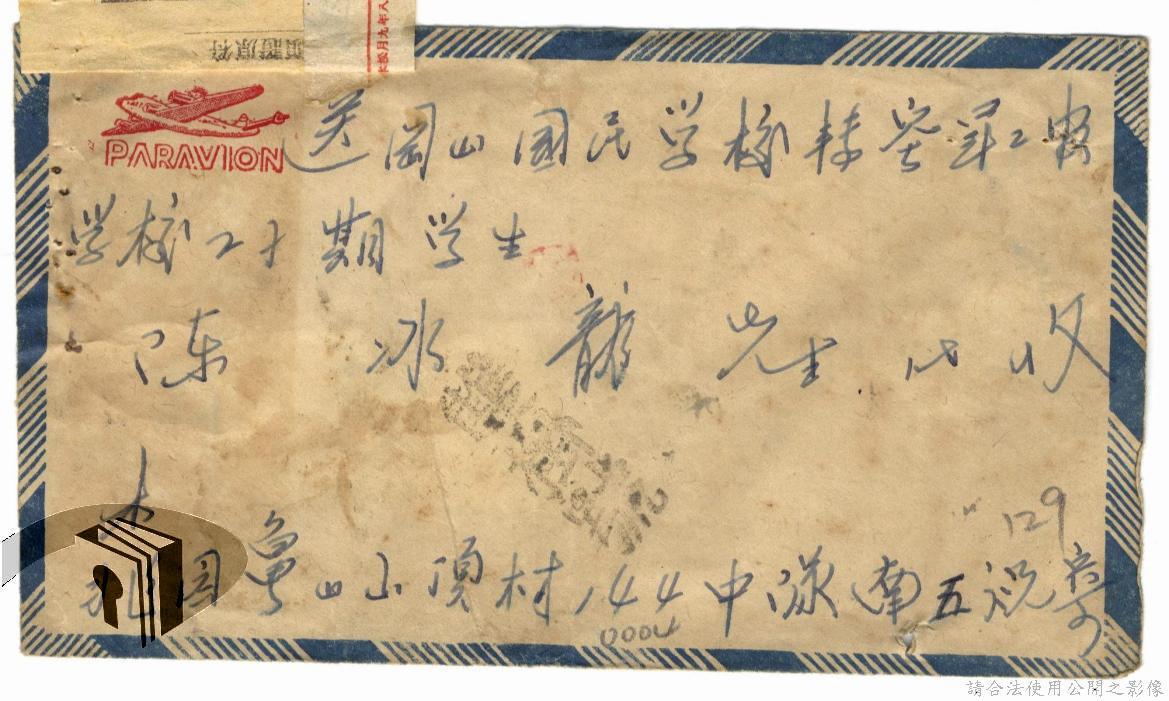 PARAVION
送岡山国民学校转空军
学校二十期学生
陈冰龍先生代收
129
園龜山山頂村144中隊南五号寄
0004
請合法使用公開之影像